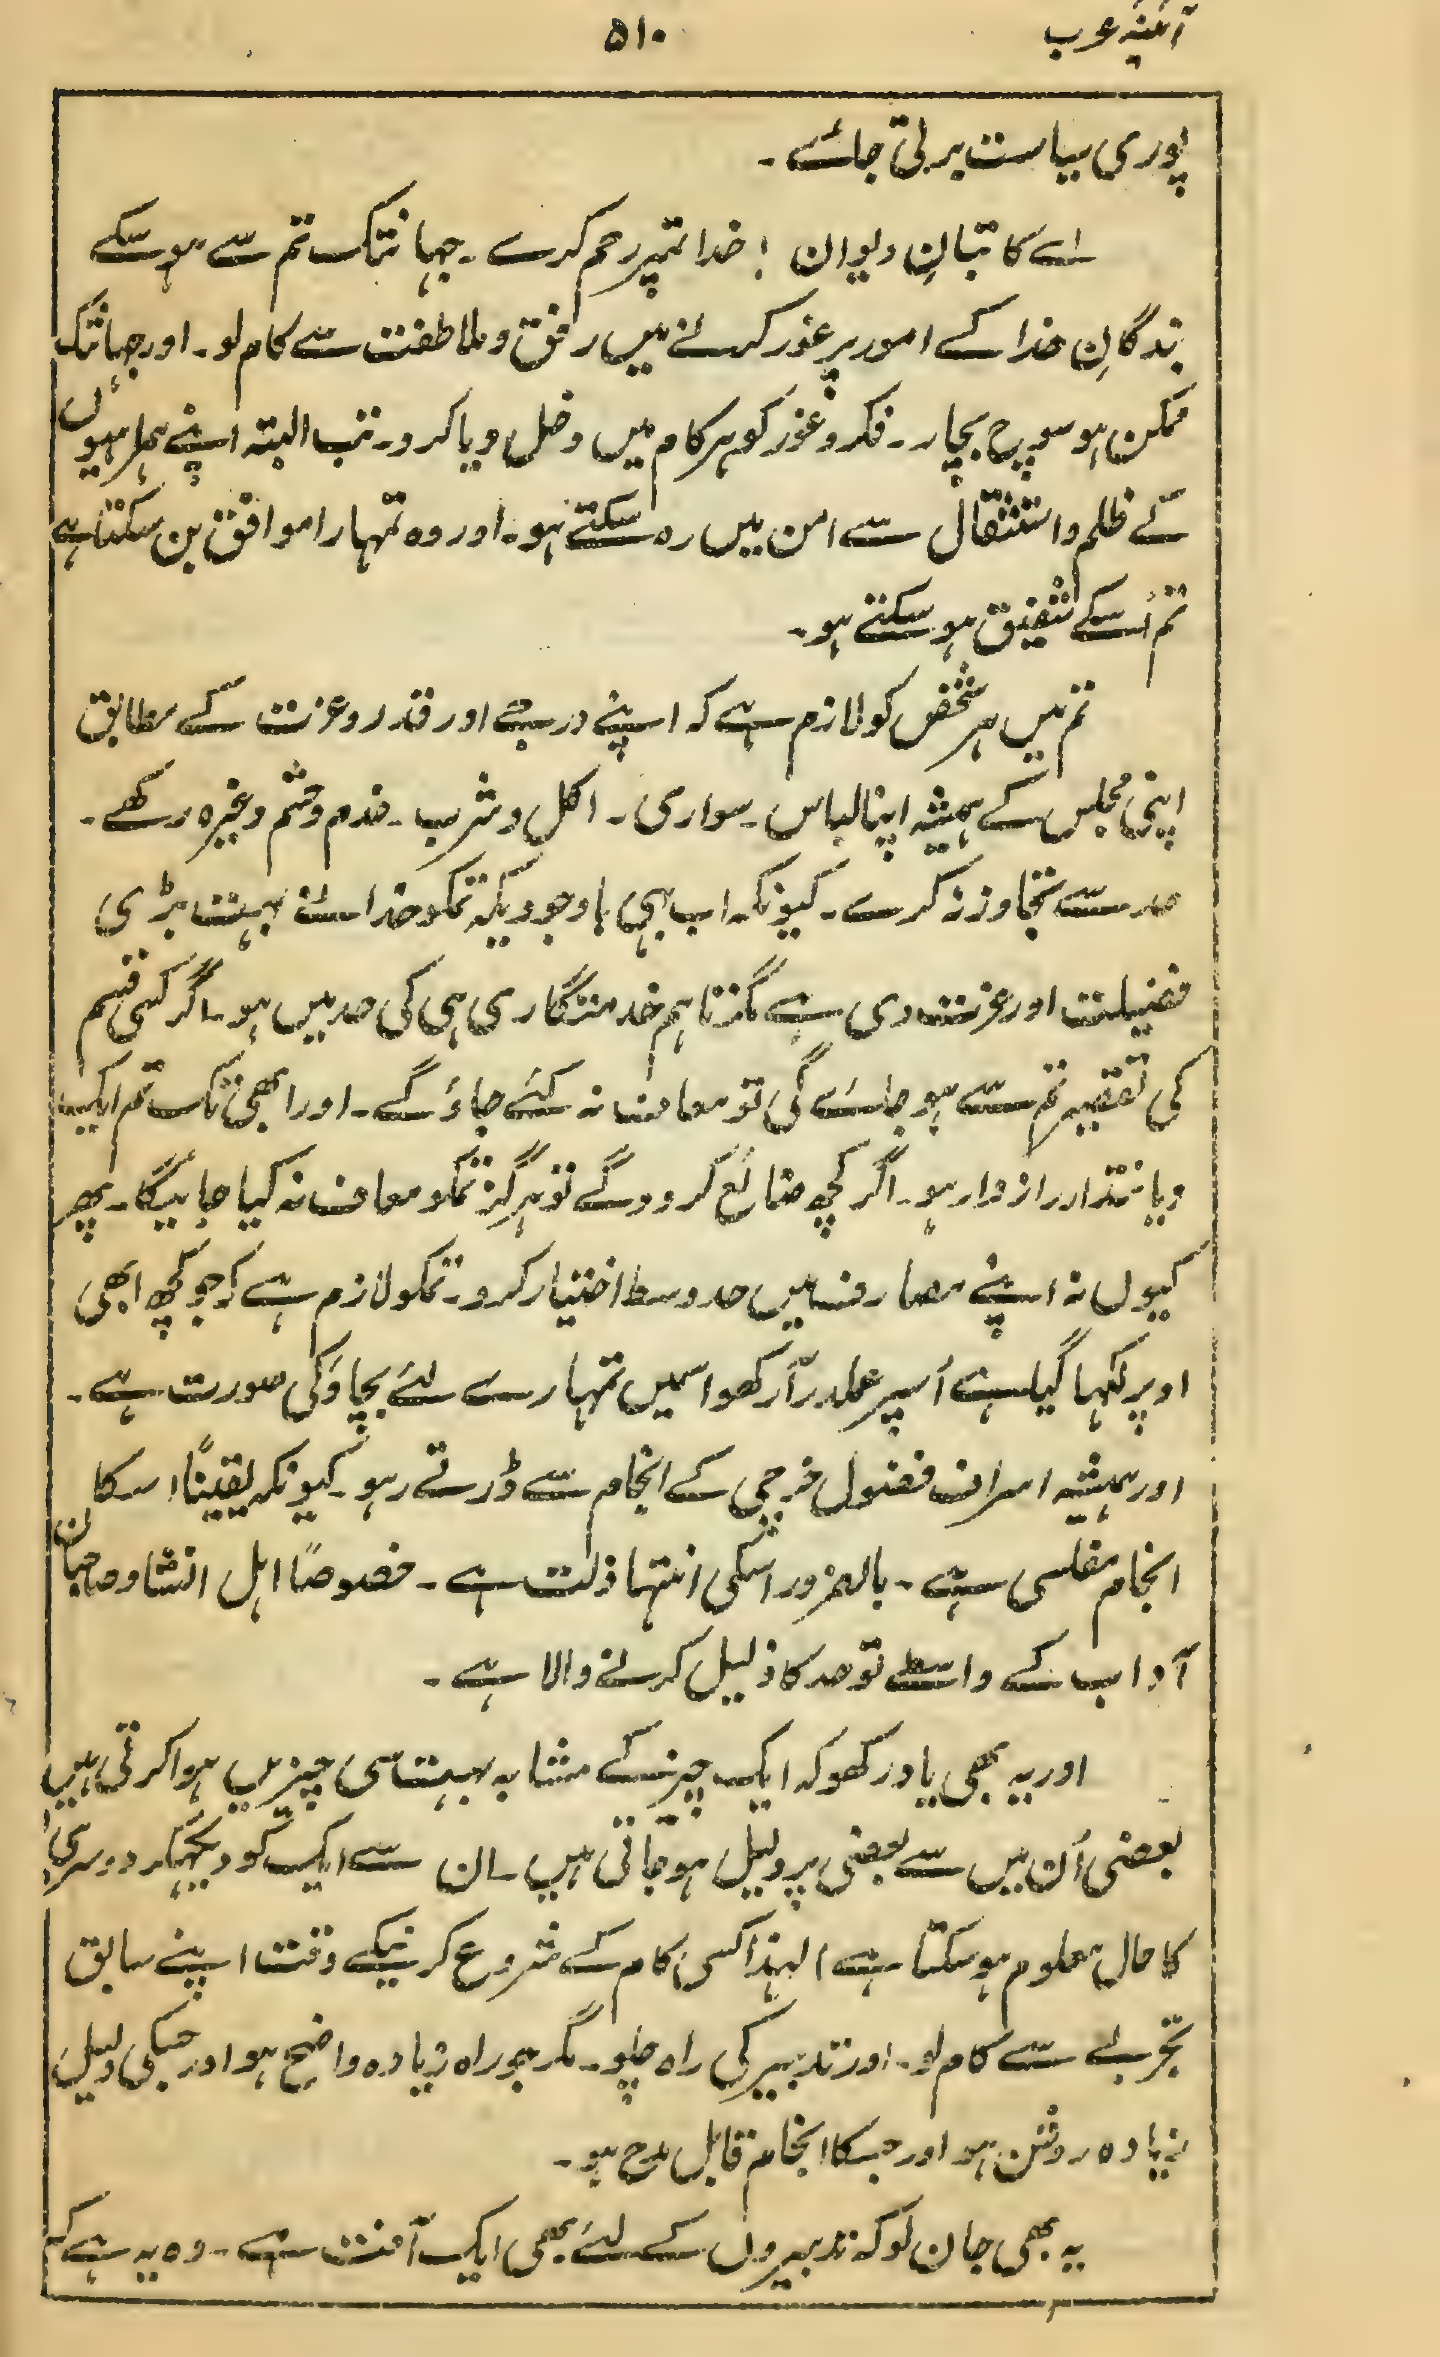 آئینۂ عرب
۵۱۰
پوری سیاست برتی جائے ۔
اے کاتبانِ دیوان ! خدا تمپر رحم کرے ۔ جہانتک تم سے ہوسکے
بندگانِ خدا کے امور پر غور کرنے میں رفق و ملاطفت سے کام لو ۔ اور جہانتک
ممکن ہو سوچ بچار ۔ فکر و غور کو ہر کام میں دخل دیا کرو ۔ تب البتہ اپنے ہمراہیوں
کے ظلم و استثقال سے امن میں رہ سکتے ہو ۔ اور وہ تمہارا موافق بن سکتا ہے
تم اُسکے شفیق ہو سکتے ہو ۔
تم میں ہر شخص کو لازم ہے کہ اپنے درجے اور قدر و عزت کے مطابق
اپنی مجلس کے ہمیشہ اپنا لباس ۔ سواری ۔ اکل و شرب ۔ خدم و حشم وغیرہ رکھے ۔
حد سے تجاوز نہ کرے ۔ کیونکہ اب بہی باوجودیکہ تمکو خدا نے بہت بڑی
فضیلت اور عزت دی ہے مگر تاہم خدمتگاری ہی کی حد میں ہو ۔ اگر کسی قسم
کی تقصیر تم سے ہو جائے گی تو معاف نہ کئے جاؤ گے ۔ اور ابھی تک تم ایک
دیانتدار رازدار ہو ۔ اگر کچھ ضائع کر دو گے تو ہرگز تمکو معاف نہ کیا جائیگا ۔ پھر
کیوں نہ اپنے مصارف میں حد وسط اختیار کرو ۔ تمکو لازم ہے کہ جو کچھ ابھی
اوپر لکہا گیا ہے اُسپر عملدرآر رکھو اسمیں تمہارے لئے بچاؤ کی صورت ہے ۔
اور ہمیشہ اسراف فضول خرچی کے انجام سے ڈرتے رہو ۔ کیونکہ یقیناً اسکا
انجام مفلسی ہے ۔ بالضرور اسکی انتہا ذلت ہے ۔ خصوصاً اہل انشا و صاحبان
آداب کے واسطے تو حد کا ذلیل کرنے والا ہے ۔
اور یہ بھی یاد رکھو کہ ایک چیز کے مشابہ بہت سی چیزیں ہوا کرتی ہیں
بعضی اُن میں سے بعضی پر دلیل ہو جاتی ہیں ۔ ان سے ایک کو دیکہکر دوسری
کا حال معلوم ہو سکتا ہے ، لہذا کسی کام کے شروع کرنیکے وقت اپنے سابق
تجربے سے کام لو ۔ اور تدبیر کی راہ چلو ۔ مگر جو راہ زیادہ واضح ہو اور جسکی دلیل
زیادہ روشن ہو اور جسکا انجام قابل مدح ہو ۔
یہ بھی جان لو کہ تدبیروں کے لئے بھی ایک آفت ہے ۔ وہ یہ ہے کہ